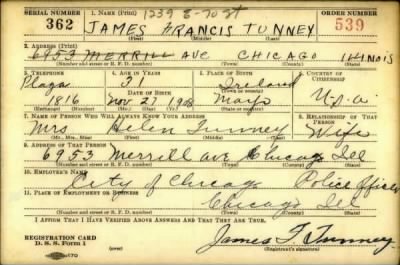 SERIAL NUMBER 1. NAME (Print) 1239 E-70 St ORDER NUMBER
362 JAMES FRANCIS TUNNEY 539
(First) (Middle) (Last)
2. ADDRESS (Print)
6953 MERRILL AVE CHICAGO ILLINOIS
(Number and street or R. F. D. number) (Town) (County) (State)
3. TELEPHONE 4. AGE IN YEARS 5. PLACE OF BIRTH 6. COUNTRY OF CITIZENSHIP
Plaza 31 Ireland
DATE OF BIRTH
1816 Nov 27 Mayo U.S.A.
(Exchange) (Number) (Mo.) (Day) (Yr.)
7. NAME OF PERSON WHO WILL ALWAYS KNOW YOUR ADDRESS 8. RELATIONSHIP OF THAT PERSON
Mrs Helen Tunney Wife
(Mr., Mrs., Miss) (First) (Middle) (Last)
9. ADDRESS OF THAT PERSON
6953 Merrill ave Chicago Ill
(Number and street or R. F. D. number) (Town) (County) (State)
10. EMPLOYER'S NAME
City of Chicago Police Officer
11. PLACE OF EMPLOYMENT OR BUSINESS
Chicago Ill
(Number and street or R. F. D. number) (Town) (County) (State)
I AFFIRM THAT I HAVE VERIFIED ABOVE ANSWERS AND THAT THEY ARE TRUE.
REGISTRATION CARD
D. S. S. Form 1
James F Tunney